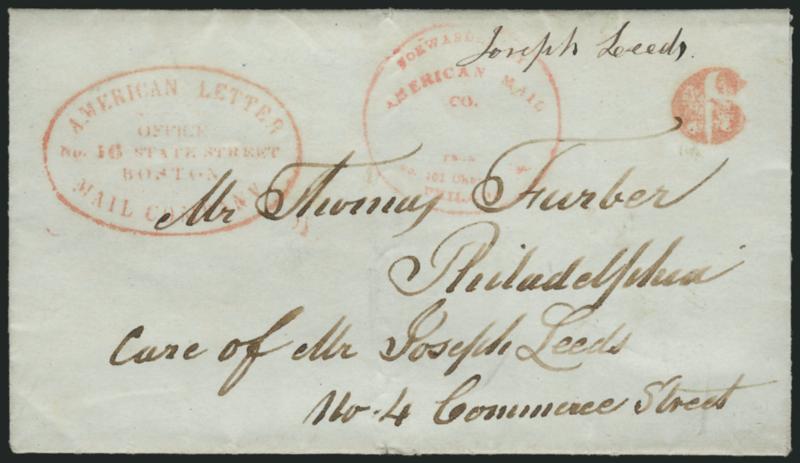 Joseph Leeds.
AMERICAN LETTER
OFFICE
No. 16 STATE STREET
BOSTON
MAIL COMPANY
FORWARDED
AMERICAN MAIL
CO.
FROM
No. 101
PHILA
6
Mr Thomas Furber
Philadelphia
Care of Mr Joseph Leeds
No. 4 Commerce Street